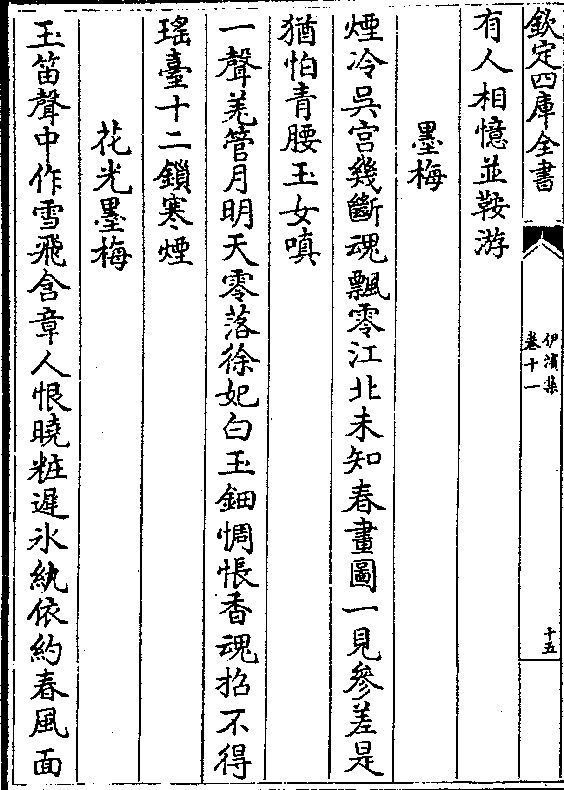 欽定四庫全書
伊濱集
卷十一
十五
有人相憶並鞍游
墨梅
煙冷吳宫幾斷魂飄零江北未知春畫圖一見參差是
猶怕青腰玉女嗔
一聲羌管月明天零落徐妃白玉鈿惆悵香魂招不得
瑤臺十二鎖寒煙
花光墨梅
玉笛聲中作雪飛含章人恨曉粧遲氷紈依約春風面